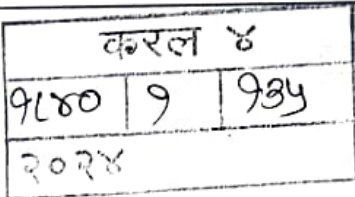 करल ४
१८४० | १ | १३५
२०२४